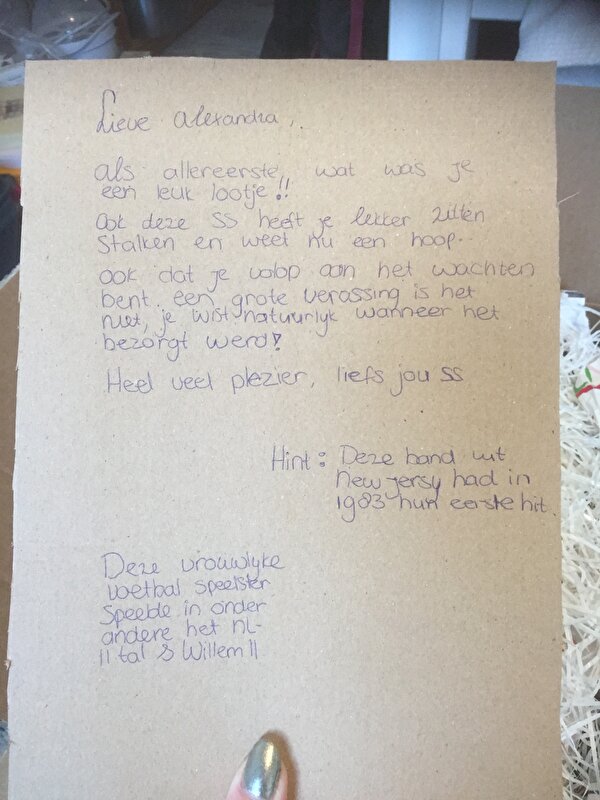 Lieve Alexandra,
als allereerste, wat was je
een leuk lootje!!
Ook deze SS heeft je lekker zitten
stalken en weet nu een hoop..
ook dat je volop aan het wachten
bent. een grote verassing is het
niet, je wist natuurlyk wanneer het
bezorgt werd!
Heel veel plezier, liefs jou SS
Hint: Deze band uit
New Jersy had in
1983 hun eerste hit.
Deze vrouwlyke
voetbal speelster
Speelde in onder
andere het NL-
11 tal & Willem II